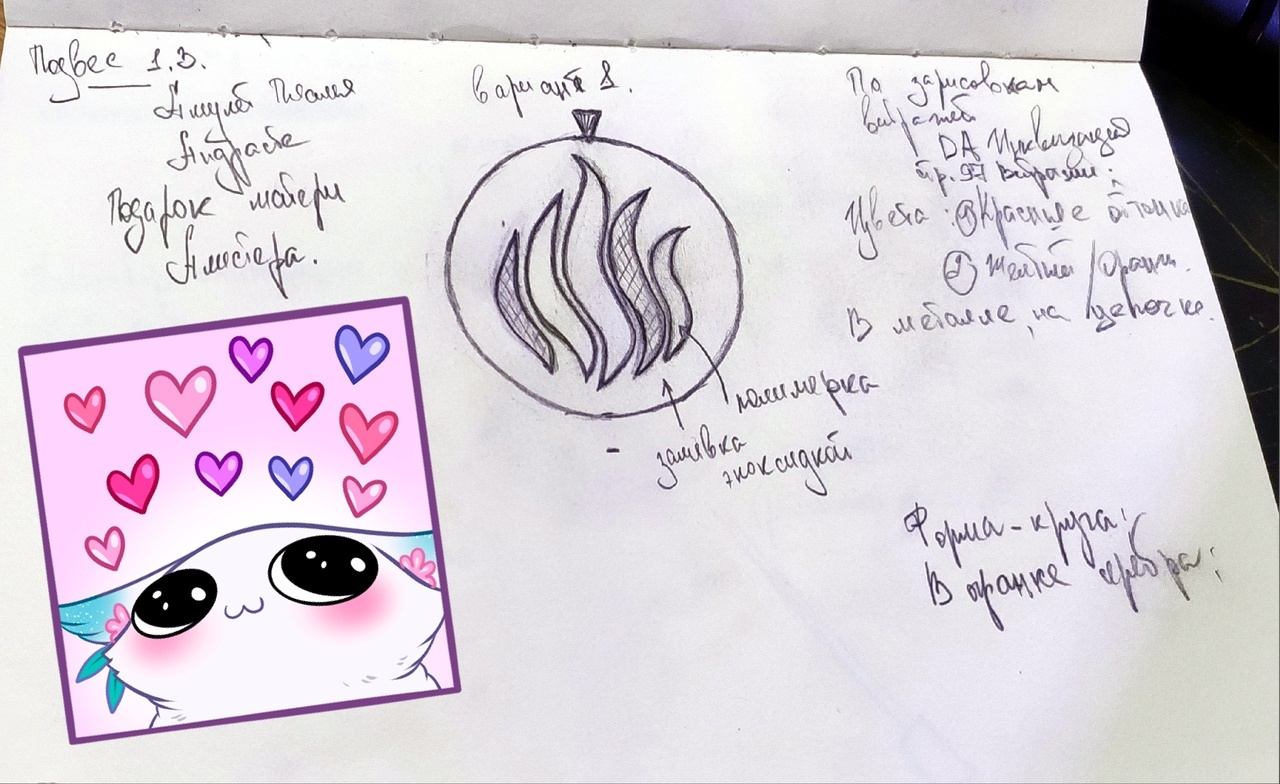 Подвес 1.В.
Амулет Пламя
Андрасте
Подарок матери
Алистера.
Вариант 1.
По зарисовкам
витражей
DA Инквизиция
стр. 97 Витражи.
Цвета: ① Красные оттенки
② Желтый / Оранж.
В металле, на цепочке.
полимерка
заливка
эпоксидкой
Форма - круга;
В огранке серебра;